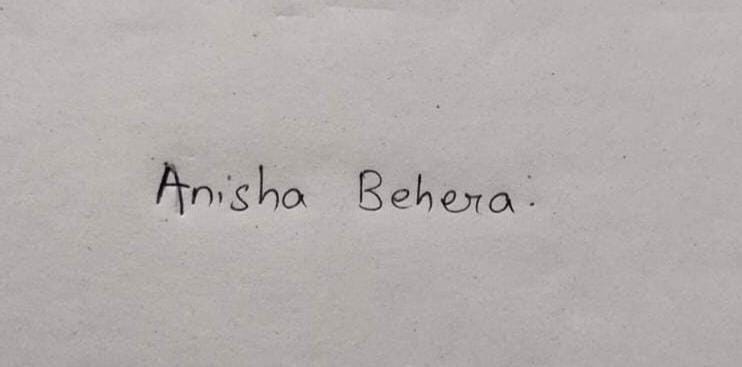 Anisha Behera.